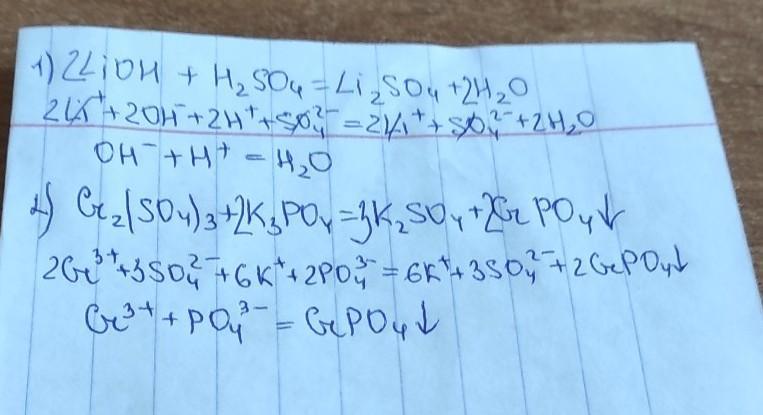 1) 2LiOH + H₂SO₄ = Li₂SO₄ + 2H₂O
2Li⁺ + 2OH⁻ + 2H⁺ + SO₄²⁻ = 2Li⁺ + SO₄²⁻ + 2H₂O
OH⁻ + H⁺ = H₂O
2) Cr₂(SO₄)₃ + 2K₃PO₄ = 3K₂SO₄ + 2CrPO₄↓
2Cr³⁺ + 3SO₄²⁻ + 6K⁺ + 2PO₄³⁻ = 6K⁺ + 3SO₄²⁻ + 2CrPO₄↓
Cr³⁺ + PO₄³⁻ = CrPO₄↓